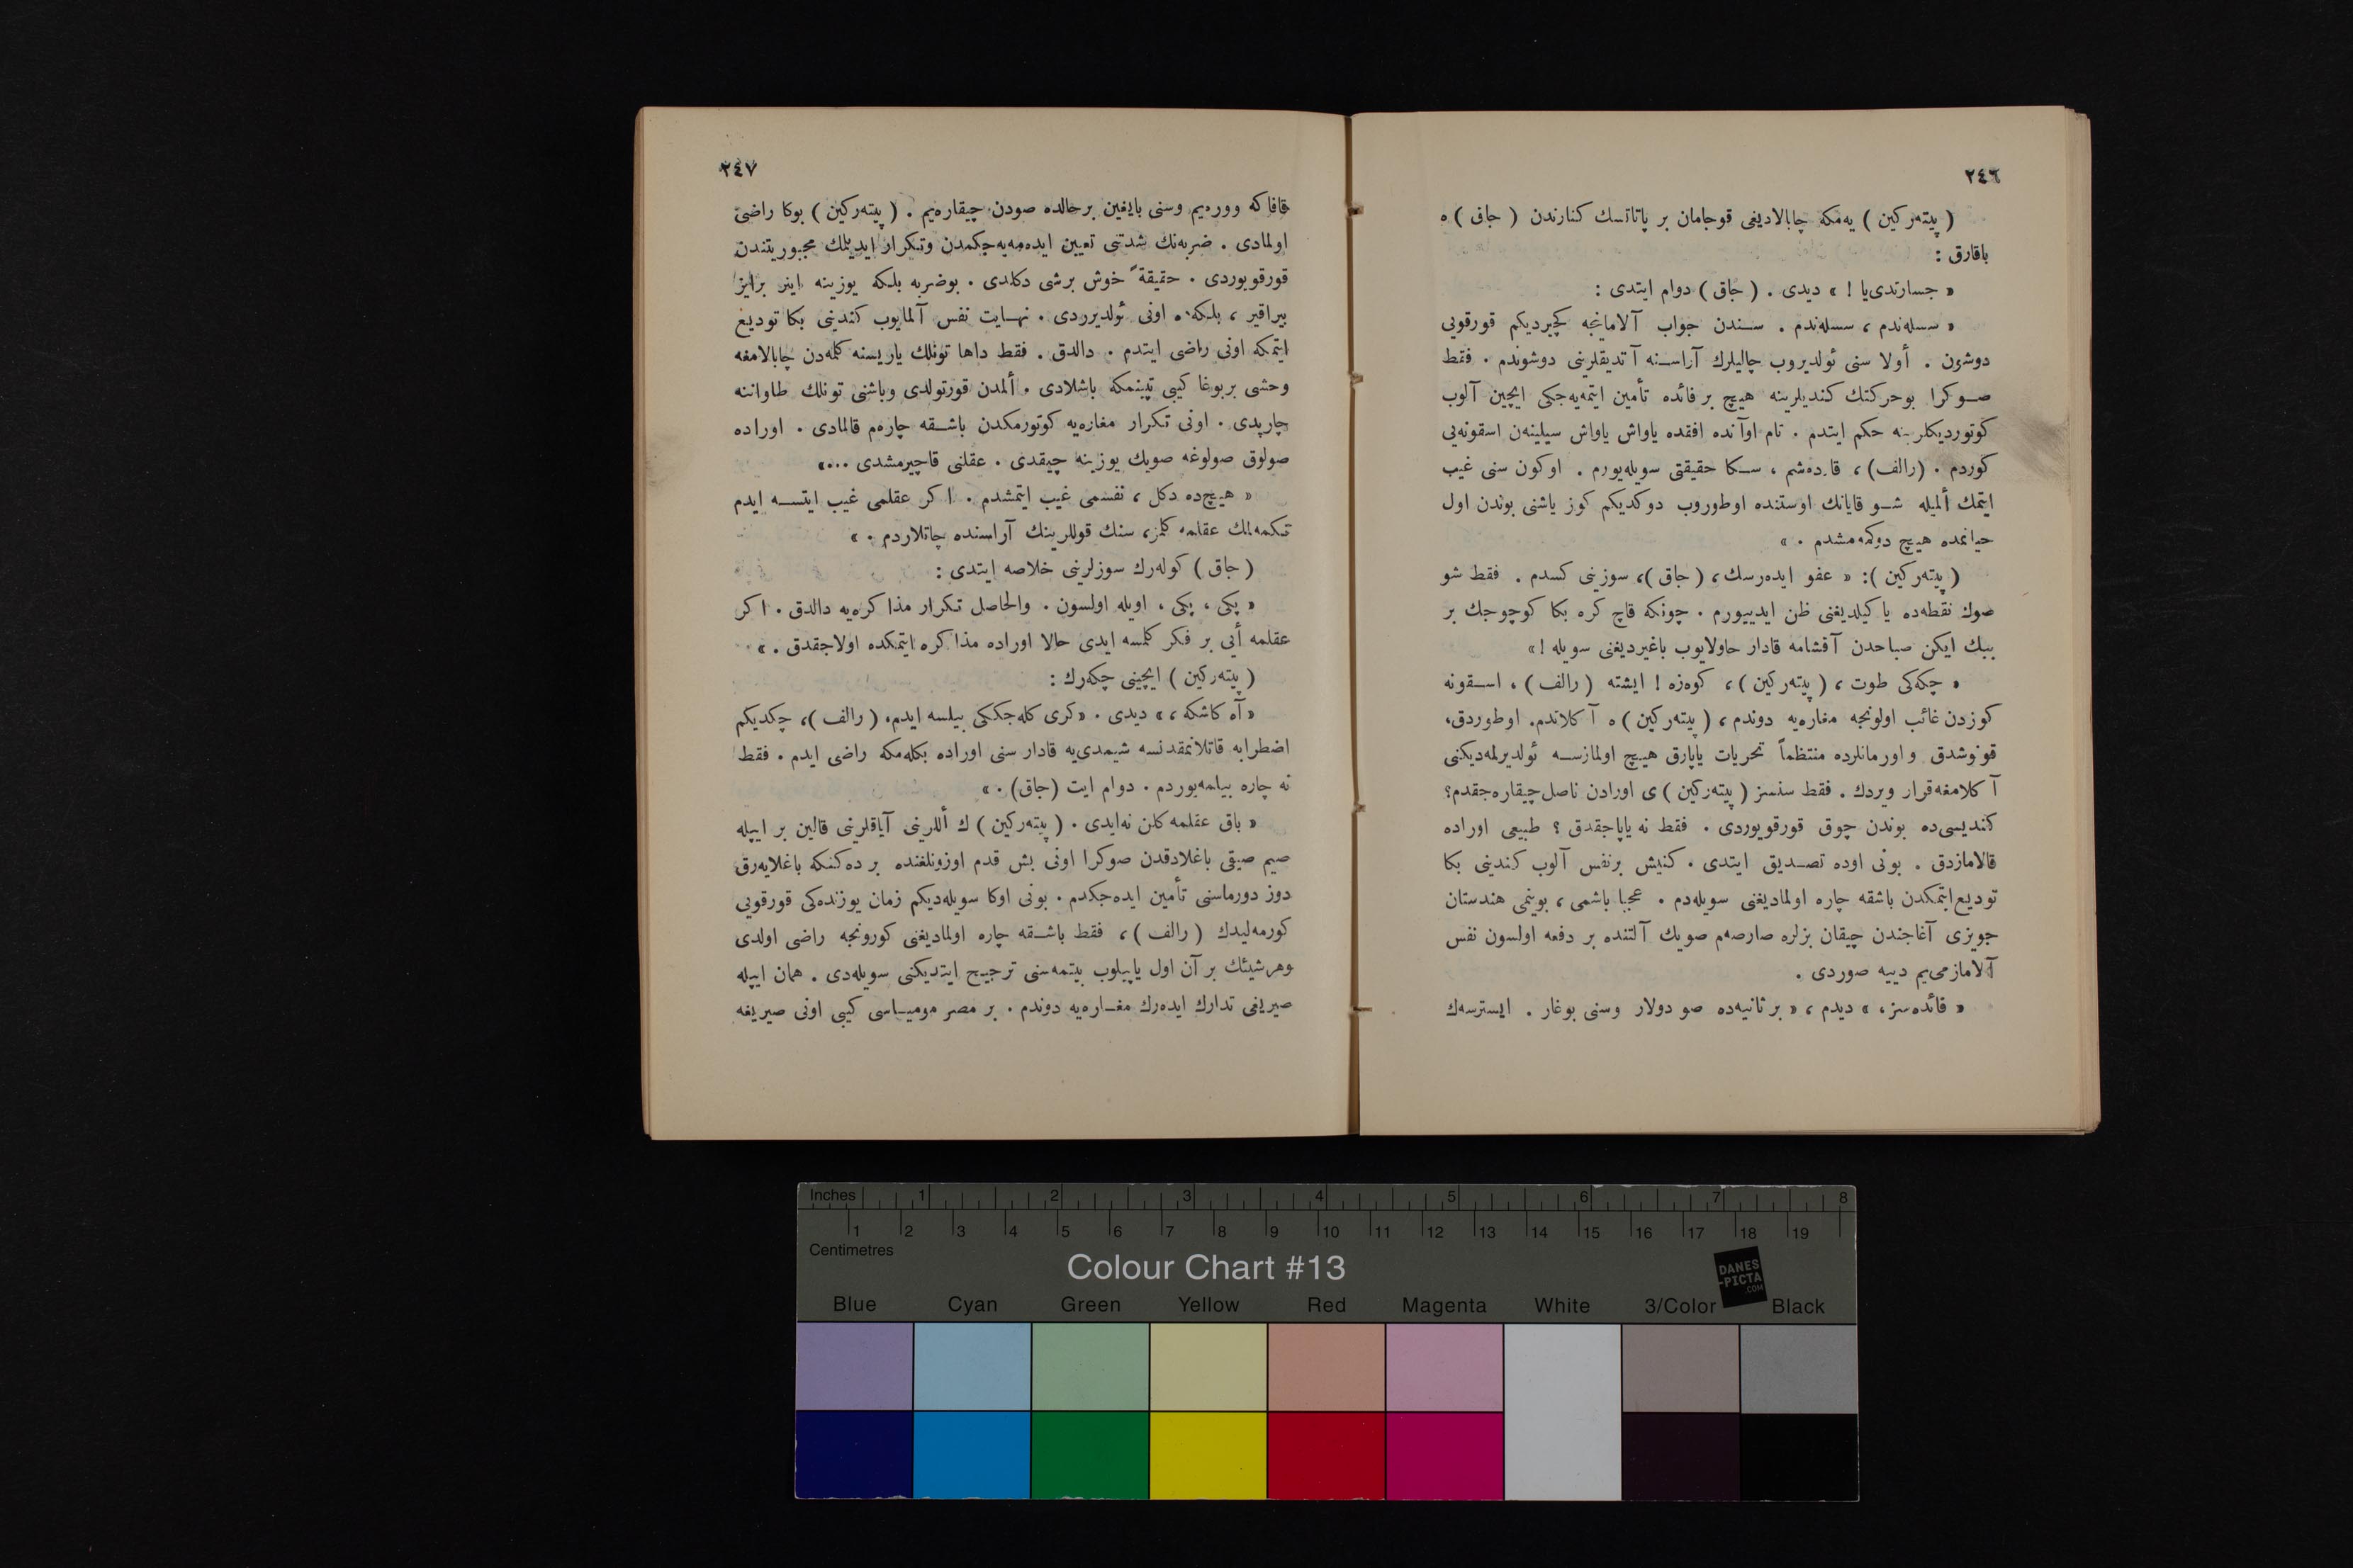 ٢٤٦
( پیته‌ركین ) یه‌مكه چابالادیغی قوجامان بر پاتاتسك كنارندن ( جاق ) ه
باقارق :
« جسارتدی‌یا ! » دیدی . ( جاق ) دوام ایتدی :
« سسله‌ندم ، سسله‌ندم . سندن جواب آلامایجه كچیردیكم قورقویی
دوشون . أولا سنی ئولدیروب چالیلرك آراسنه آتدیقلرینی دوشوندم . فقط
صوكرا بوحركتك كندیلرینه هیچ بر فائده تأمین ایتمه‌یه‌جكی ایچین آلوب
كوتوردیكلرینه حكم ایتدم . تام اوآنده افقده یاواش یاواش سیلینه‌ن اسقونه‌یی
كوردم . (رالف) ، قارده‌شم ، سكا حقیقتی سویله‌یورم . اوكون سنی غیب
ایتمك ألمیله شو قایانك اوستنده اوطوروب دوكدیكم كوز یاشنی بوندن اول
حیاتمده هیچ دوكمه‌مشدم . »
( پیته‌ركین ): « عفو ایده‌رسك ، (جاق)، سوزینی كسدم . فقط شو
صوك نقطه‌ده یاكیلدیغنی ظن ایدییورم . چونكه قاچ كره بكا كوچوجك بر
ببك ایكن صباحدن آقشامه قادار حاولایوب باغیردیغنی سویله !»
« چكه‌كی طوت ، ( پیته‌ركین ) ، كوه‌زه ! ایشته ( رالف ) ، اسقونه
كوزدن غائب اولونجه مغاره‌یه دوندم ، ( پیته‌ركین ) ه آكلاتدم. اوطوردق،
قونوشدق و اورمانلرده منتظماً تحریات یاپارق هیچ اولمازسه ئولدیرلمه‌دیكنی
آكلامغه‌قرار ویردك . فقط سنسز ( پیته‌ركین ) ی اورادن ناصل‌چیقاره‌جقدم؟
كندیسی‌ده بوندن چوق قورقویوردی . فقط نه یاپاجقدق ؟ طبیعی اوراده
قالامازدق . بونی اوده تصدیق ایتدی . كنیش برنفس آلوب كندینی بكا
تودیع‌ایتمكدن باشقه چاره اولمادیغنی سویله‌دم . عجبا باشمی ، بوینمی هندستان
جویزی آغاجندن چیقان بزلره صارصه‌م صویك آلتنده بر دفعه اولسون نفس
آلامازمی‌یم دییه صوردی .
« فائده‌سز ، » دیدم ، « بر ثانیه‌ده صو دولار وسنی بوغار . ایسترسه‌ك
٢٤٧
قافاكه ووره‌یم وسنی بایغین برحالده صودن چیقاره‌یم . ( پیته‌ركین ) بوكا راضی
اولمادی . ضربه‌نك شدتنی تعیین ایده‌مه‌یه‌جكمدن وتكرار ایدیلمك مجبوریتندن
قورقویوردی . حقیقةً خوش برشی دكلدی . بوضربه بلكه یوزینه اینر برایز
بیراقیر ، بلكه‌ده اونی ئولدیرردی . نهایت نفس آلمایوب كندینی بكا تودیع
ایتمكه اونی راضی ایتدم . دالدق . فقط داها تونلك یاریسنه كلمه‌دن چابالامغه
وحشی بربوغا كیبی تپینمكه باشلادی . ألمدن قورتولدی وباشنی تونلك طاواننه
چارپدی . اونی تكرار مغاره‌یه كوتورمكدن باشقه چاره‌م قالمادی . اوراده
صولوق صولوغه صویك یوزینه چیقدی . عقلنی قاچیرمشدی ...»
« هیچ‌ده دكل ، نفسمی غیب ایتمشدم . اكر عقلمی غیب ایتسه ایدم
تكمه‌لك عقلمه كلمز، سنك قوللرینك آراسنده چاتلاردم . »
( جاق ) كوله‌رك سوزلرینی خلاصه ایتدی :
« پكی ، پكی ، اویله اولسون . والحاصل تكرار مذاكره‌یه دالدق . اكر
عقلمه أیی بر فكر كلمسه ایدی حالا اوراده مذاكره ایتمكده اولاجقدق . »
( پیته‌ركین ) ایچینی چكه‌رك :
« آه كاشكه ، » دیدی . «كری كله‌جككی بیلسه ایدم، (رالف)، چكدیكم
اضطرابه قاتلانمقدنسه شیمدی‌یه قادار سنی اوراده بكله‌مكه راضی ایدم . فقط
نه چاره بیلمه‌یوردم . دوام ایت (جاق) . »
« باق عقلمه كلن نه‌ایدی . ( پیته‌ركین ) ك أللرینی آیاقلرینی قالین بر ایپله
صیم صیقی باغلادقدن صوكرا اونی بش قدم اوزونلغنده بر ده‌كنكه باغلایه‌رق
دوز دورماسنی تأمین ایده‌جكدم . بونی اوكا سویله‌دیكم زمان یوزنده‌كی قورقویی
كورمه‌لیدك ( رالف ) ، فقط باشقه چاره اولمادیغنی كورونجه راضی اولدی
وهرشیئك بر آن اول یاپیلوب بیتمه‌سنی ترجیح ایتدیكنی سویله‌دی . همان ایپله
صیریغی تدارك ایده‌رك مغاره‌یه دوندم . بر مصر مومیاسی كیبی اونی صیریغه
Inches 1 2 3 4 5 6 7 8
1 2 3 4 5 6 7 8 9 10 11 12 13 14 15 16 17 18 19
Centimetres
Colour Chart #13
DANES
-PICTA
.COM
Blue Cyan Green Yellow Red Magenta White 3/Color Black